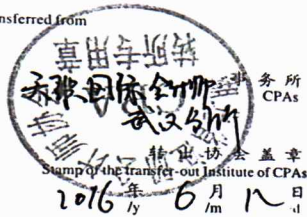 nsferred from
转所专用章
国际会计师
事务所
CPAs
武汉分所
转出协会盖章
Stamp of the transfer-out Institute of CPAs
2016 年 6 月 12 日
/y /m /d